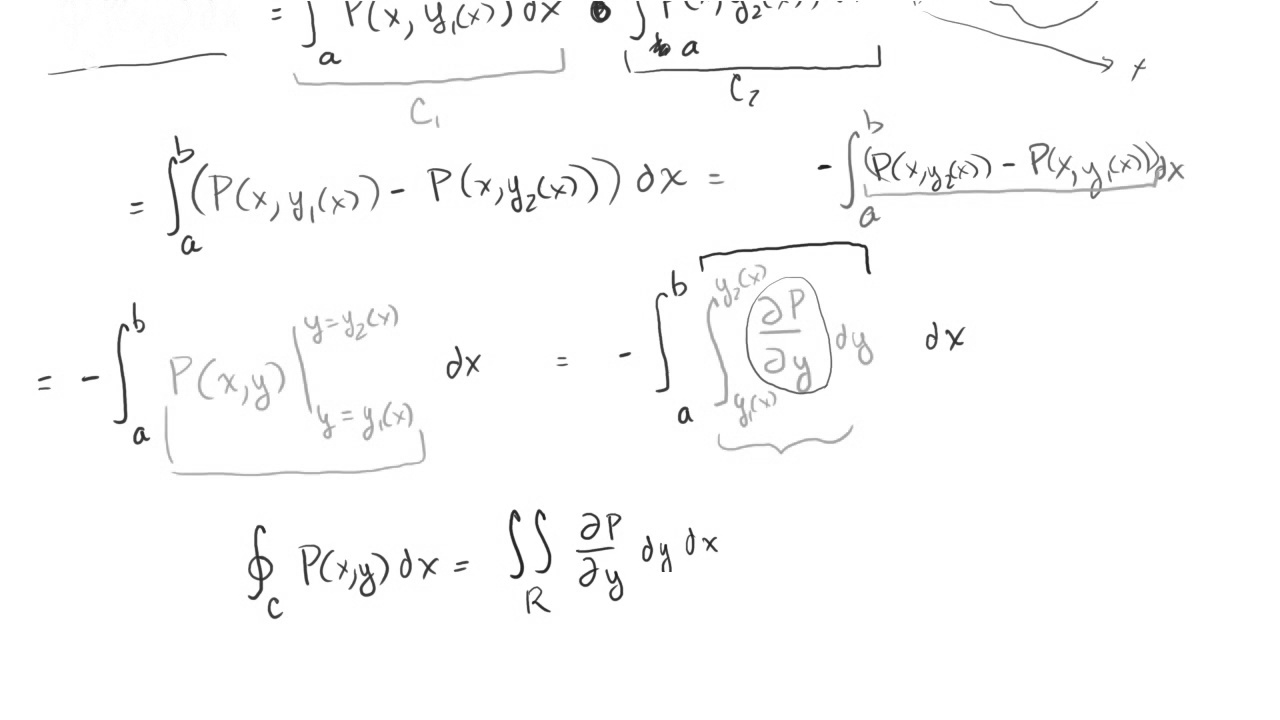 = ∫_a P(x, y₁(x)) dx ∫_a P( , y₂(x))
C₁ C₂ x
= ∫_a^b (P(x, y₁(x)) - P(x, y₂(x))) dx = - ∫_a^b (P(x, y₂(x)) - P(x, y₁(x))) dx
= - ∫_a^b P(x,y) |_{y = y₁(x)}^{y = y₂(x)} dx = - ∫_a^b ∫_{y₁(x)}^{y₂(x)} ∂P/∂y dy dx
∮_C P(x,y) dx = ∬_R ∂P/∂y dy dx